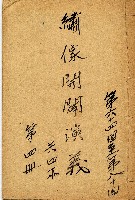 第六十四回至第八十回
繡像開闢演義
六四本
第四冊